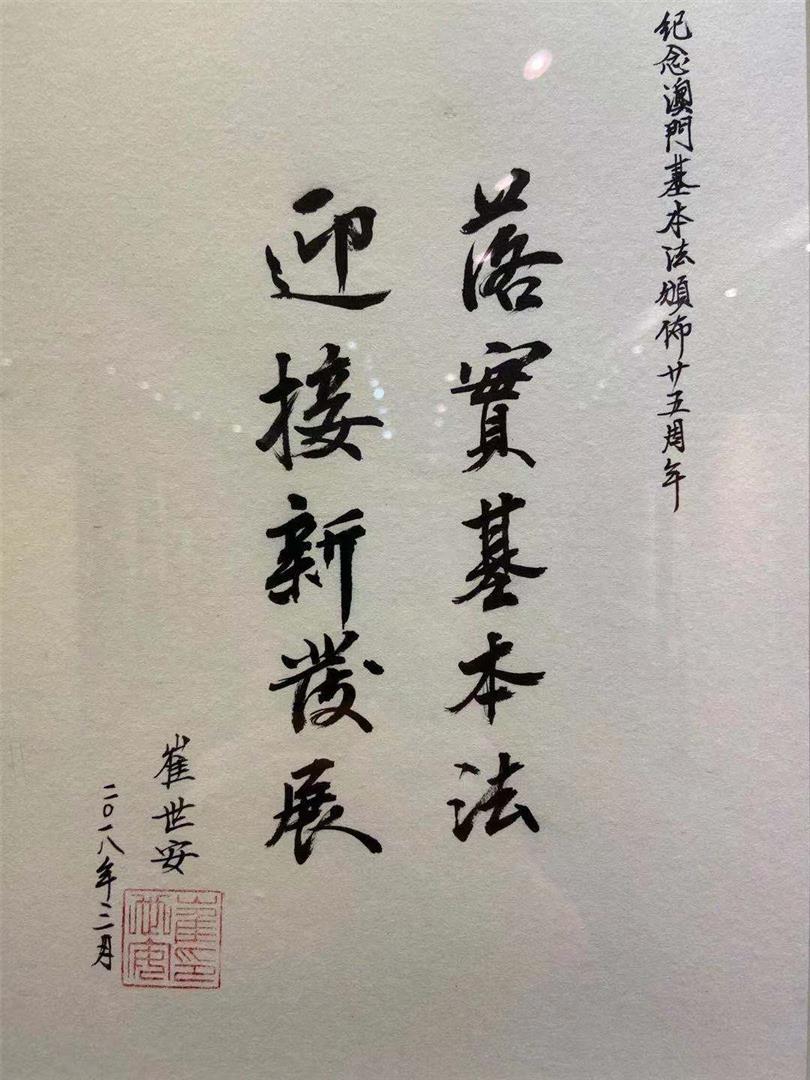 紀念澳門基本法頒佈廿五周年
落實基本法
迎接新發展
崔世安
二〇一八年三月
崔世安印